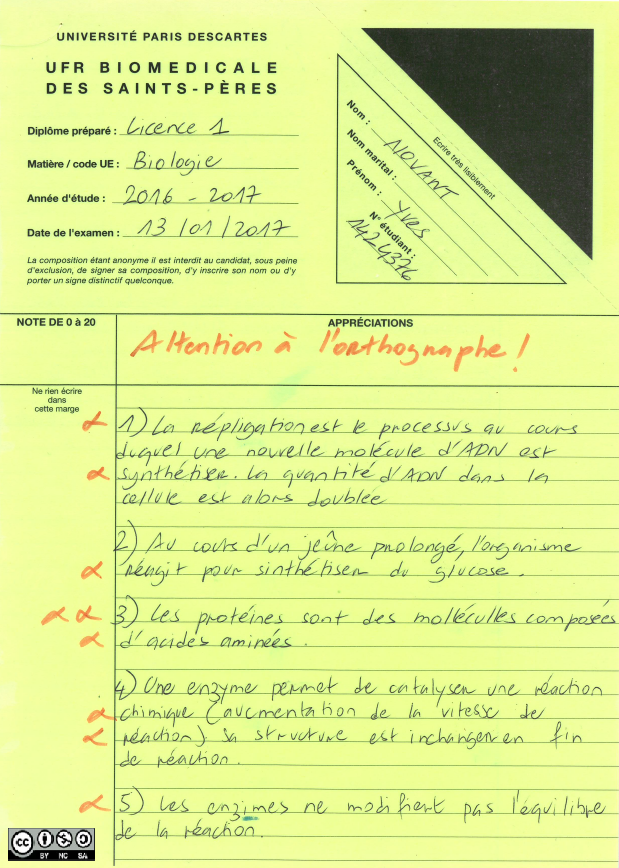 UNIVERSITÉ PARIS DESCARTES
UFR BIOMEDICALE
DES SAINTS-PÈRES
Diplôme préparé : Licence 1
Matière / code UE : Biologie
Année d'étude : 2016 - 2017
Date de l'examen : 13 / 01 / 2017
La composition étant anonyme il est interdit au candidat, sous peine
d'exclusion, de signer sa composition, d'y inscrire son nom ou d'y
porter un signe distinctif quelconque.
Ecrire très lisiblement
Nom : NOVANT
Nom marital :
Prénom : Yves
N° étudiant : 1424376
NOTE DE 0 à 20
APPRÉCIATIONS
Attention à l'orthographe !
Ne rien écrire
dans
cette marge
α 1) La répligation est le processus au cours
duquel une nouvelle molécule d'ADN est
α synthétiser. La quantité d'ADN dans la
cellule est alors doublée
2) Au cours d'un jeûne prolongé, l'organisme
α réagit pour sinthétiser du glucose.
α α 3) Les protéines sont des molléculles composées
α d'acides aminées.
4) Une enzyme permet de catalyser une réaction
α chimique (aucmentation de la vitesse de
α réaction). Sa structure est inchanger en fin
de réaction.
α 5) Les enzimes ne modifient pas l'équilibre
de la réaction.
cc BY NC SA